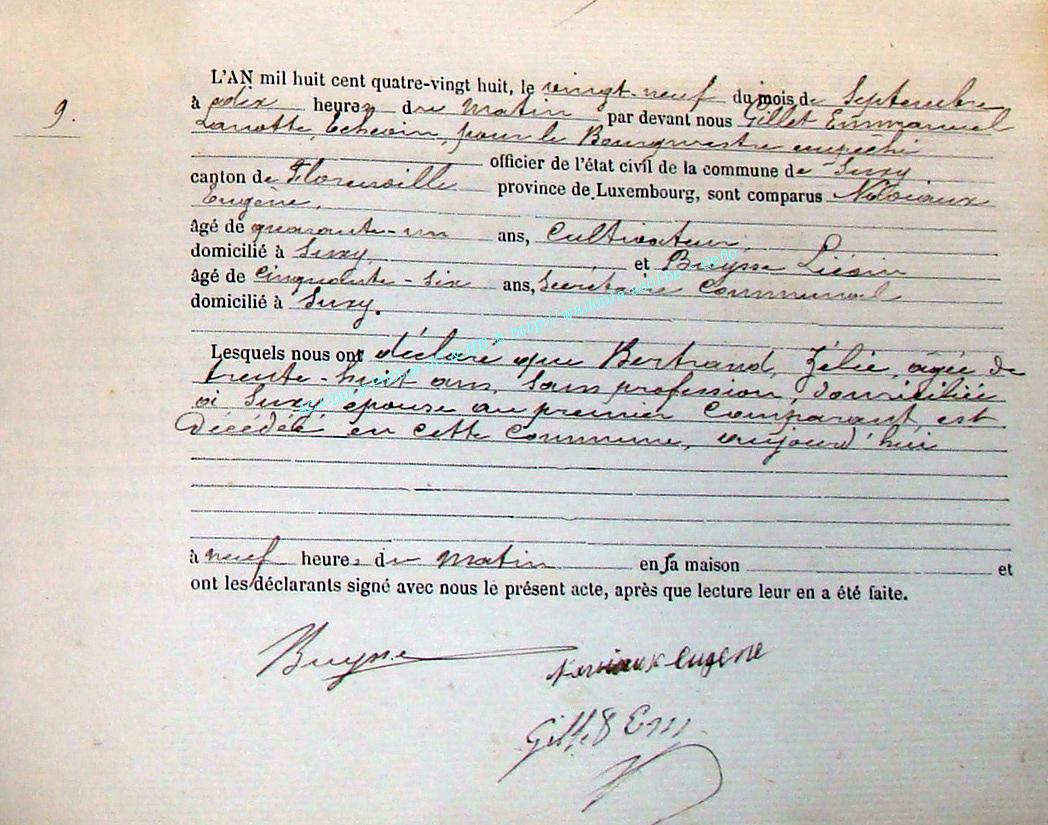 9.
L'AN mil huit cent quatre-vingt huit, le vingt-neuf du mois de Septembre
à dix heures du matin par devant nous Gillet Emmanuel
Lanotte, Echevin, pour le Bourgmestre empêché
officier de l'état civil de la commune de Suxy
canton de Florenville province de Luxembourg, sont comparus
Eugène,
âgé de quarante-un ans, Cultivateur,
domicilié à Suxy, et Buysse Liévin
âgé de Cinquante-six ans, Secrétaire Communal
domicilié à Suxy.
Lesquels nous ont déclaré que Bertrand, Zélie, âgée de
trente-huit ans, sans profession, domiciliée
à Suxy épouse au premier Comparant, est
Décédée en cette Commune, aujourd'hui
à neuf heures du matin en sa maison et
ont les déclarants signé avec nous le présent acte, après que lecture leur en a été faite.
Buysse
eugene
Gillet Em